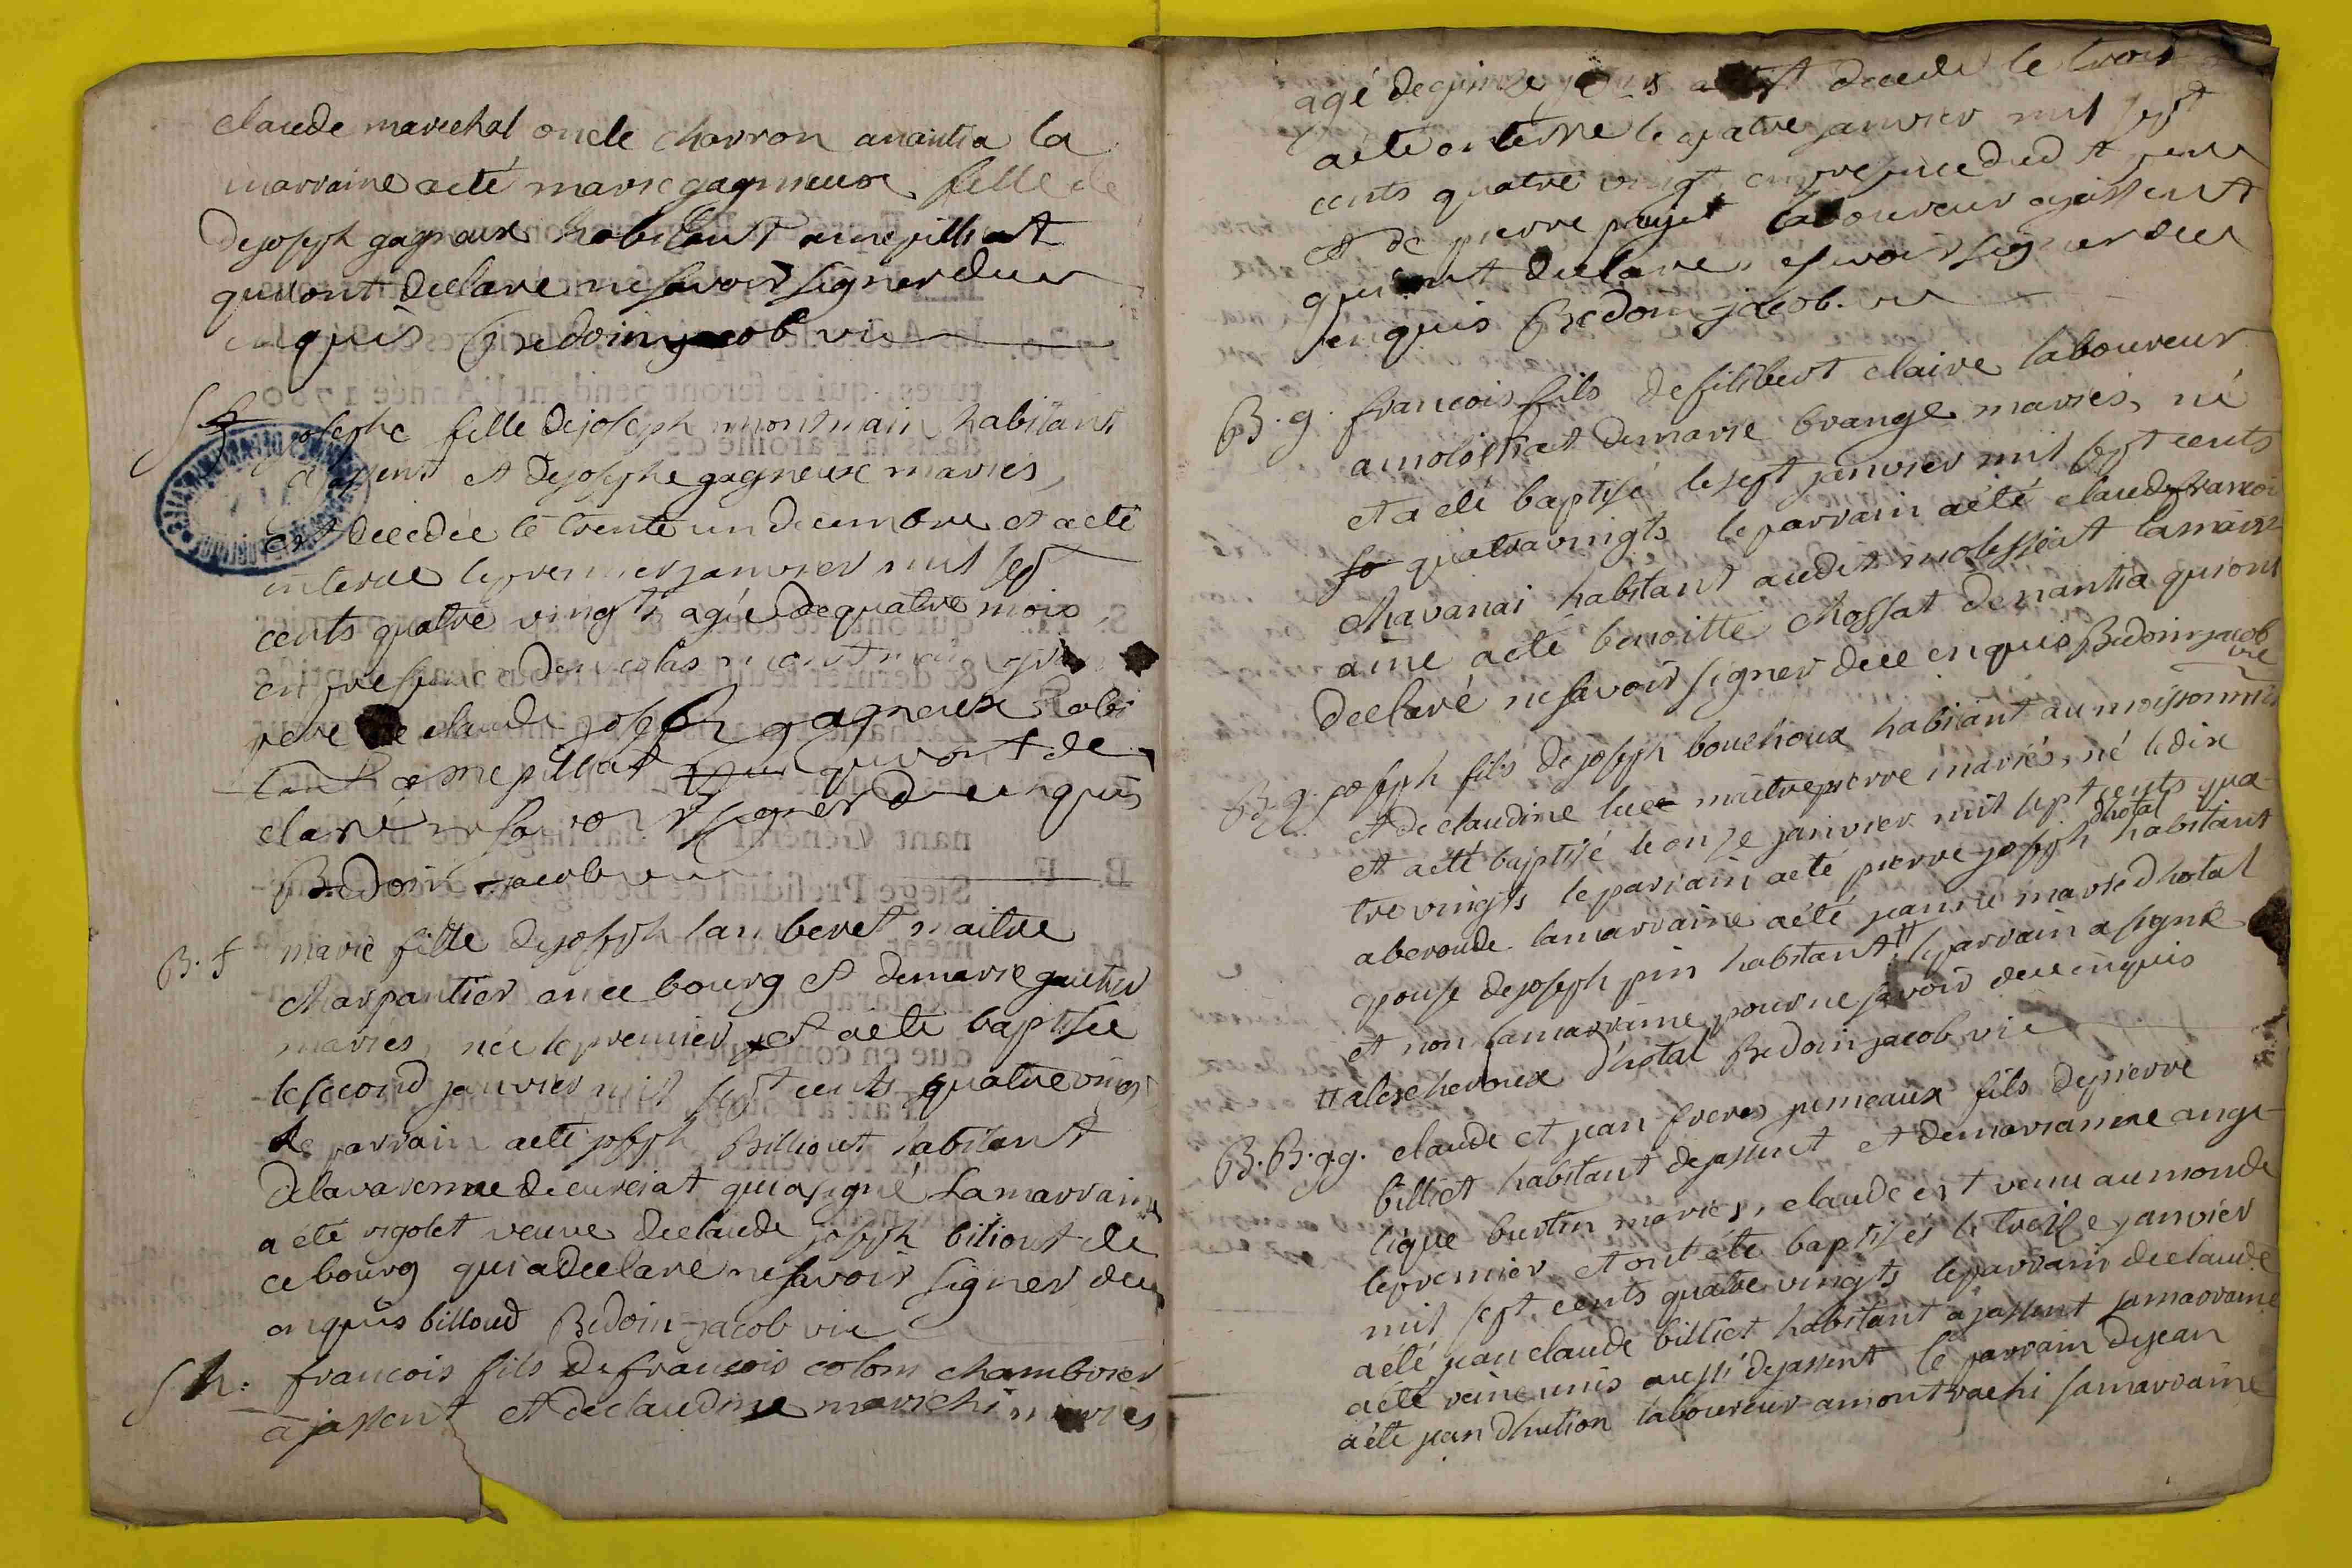 claude marechal oncle charron anantia la
marraine aeté marie gagnieux fille de
dejoseph gagneux habitant amepilliat
qui ont declaré ne savoir signer duer
enquis Bredoin jacob vic
S f josephe fille dejoseph montmain habitant
ajassent et dejosephe gagneux mariés,
est decedée le trente un decembre et aeté
enterée le premier janvier mil sept
cents quatre vingts agée de quatre mois
en presence de nicolas montmain grand
pere de claude joseph gagneux habi
tant a mepilliat qui ont de
claré ne savoir signer de enquis
Bredoin jacob vic
B. f marie fille dejoseph lamberet maitre
charpantier en ce bourg et demarie gautier
mariés, née le premier et aeté baptisée
le second janvier mil sept cents quatre vingt
le parrain aeté joseph Billiout habitant
delavarenne de curciat qui a signé La marraine
a eté rigolet veuve declaude joseph biliout de
ce bourg qui a declaré ne savoir signer de
enquis billoud Bredoin jacob vic
S h: francois fils de francois colom chambrier
a jassent et declaudine marichi mariés
agé dequinze jours est decedé le trois
aeté enterré le quatre janvier mil sept
cents quatre vingt en presence dud
et de pierre prajet laboureur ajassent
qui ont declaré ne savoir signer de
enquis Bredoin jacob. vic
B. g. francois fils defilibert claire laboureur
amolissiat demarie brange mariés, né
et a eté baptisé le sept janvier mil sept cents
quatravingts le parrain aeté claude francois
chavanai habitant audit molissiat la marr
aine aeté benoitte chossat denantia qui ont
declaré ne savoir signer de enquis Bredoin jacob
vic
B. g. joseph fils de joseph bouchoux habitant au moissonnier
et de claudine luce maitrepierre mariés, né le dix
et aeté baptisé le onze janvier mil sept cents qua
tre vingts le parrain aeté pierre joseph dhotal habitant
aberoude la marraine aeté jeanne marie dhotal
epouse dejoseph pin habitant tt le parrain a signé
et non la marraine pour ne savoir de enquis
tt alescheroux dhotal Bredoin jacob vic
B. B. g. g. claude et jean freres jumeaux fils depierre
billiet habitant dejassent et demarianne ange-
lique burtin mariés, claude est venu au monde
le premier et ont eté baptisés le treize janvier
mil sept cents quatre vingts le parrain declaude
aeté jean claude billiet habitant ajassent sa marraine
aeté reine unis aussi dejassent le parrain dejean
aeté jean dhution laboureur amontrachi sa marraine